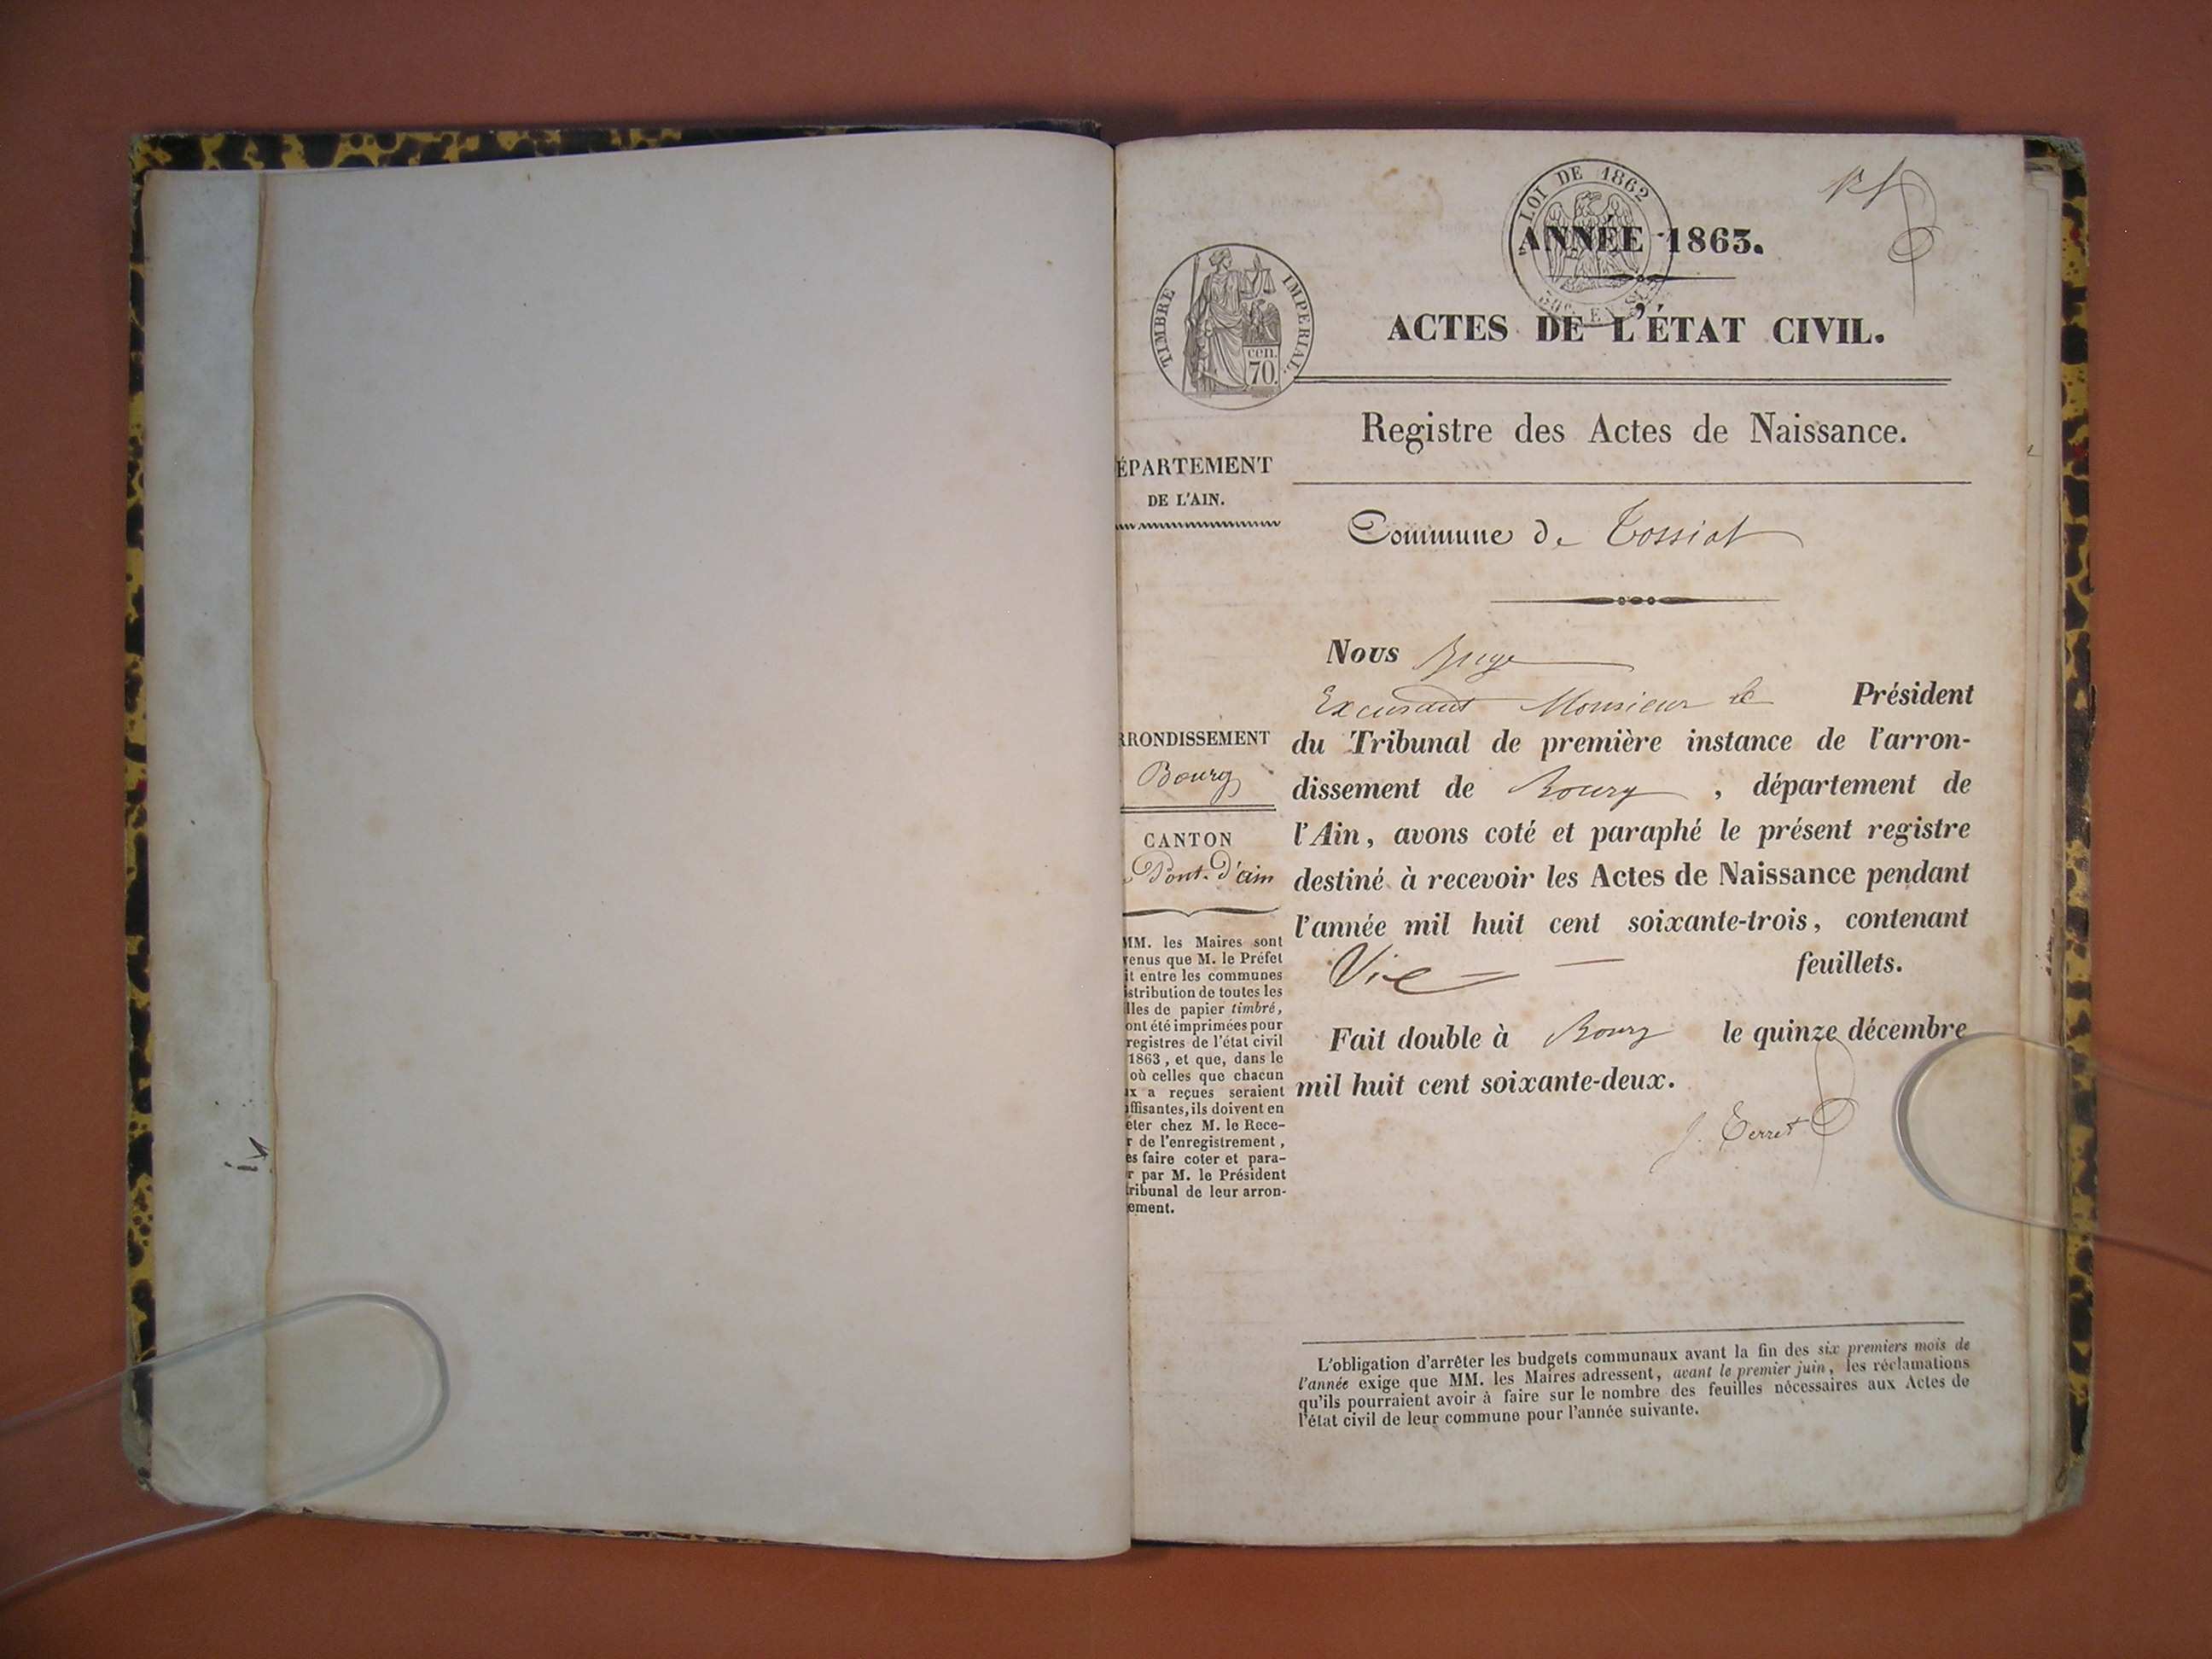 LOI DE 1862
ANNÉE 1863.
TIMBRE IMPERIAL.
cen.
70.
ACTES DE L'ÉTAT CIVIL.
Registre des Actes de Naissance.
ÉPARTEMENT
DE L'AIN.
Commune de Tossiat
Nous
Excusant Monsieur le Président
du Tribunal de première instance de l'arron-
dissement de Bourg, département de
l'Ain, avons coté et paraphé le présent registre
destiné à recevoir les Actes de Naissance pendant
l'année mil huit cent soixante-trois, contenant
feuillets.
Fait double à Bourg le quinze décembre
mil huit cent soixante-deux.
J. Terret
RRONDISSEMENT
Bourg
CANTON
Pont-d'ain
MM. les Maires sont
venus que M. le Préfet
it entre les communes
istribution de toutes les
lles de papier timbré,
ont été imprimées pour
registres de l'état civil
1863, et que, dans le
où celles que chacun
x a reçues seraient
ffisantes, ils doivent en
eter chez M. le Rece-
r de l'enregistrement,
es faire coter et para-
r par M. le Président
tribunal de leur arron-
ement.
L'obligation d'arrêter les budgets communaux avant la fin des six premiers mois de
l'année exige que MM. les Maires adressent, avant le premier juin, les réclamations
qu'ils pourraient avoir à faire sur le nombre des feuilles nécessaires aux Actes de
l'état civil de leur commune pour l'année suivante.